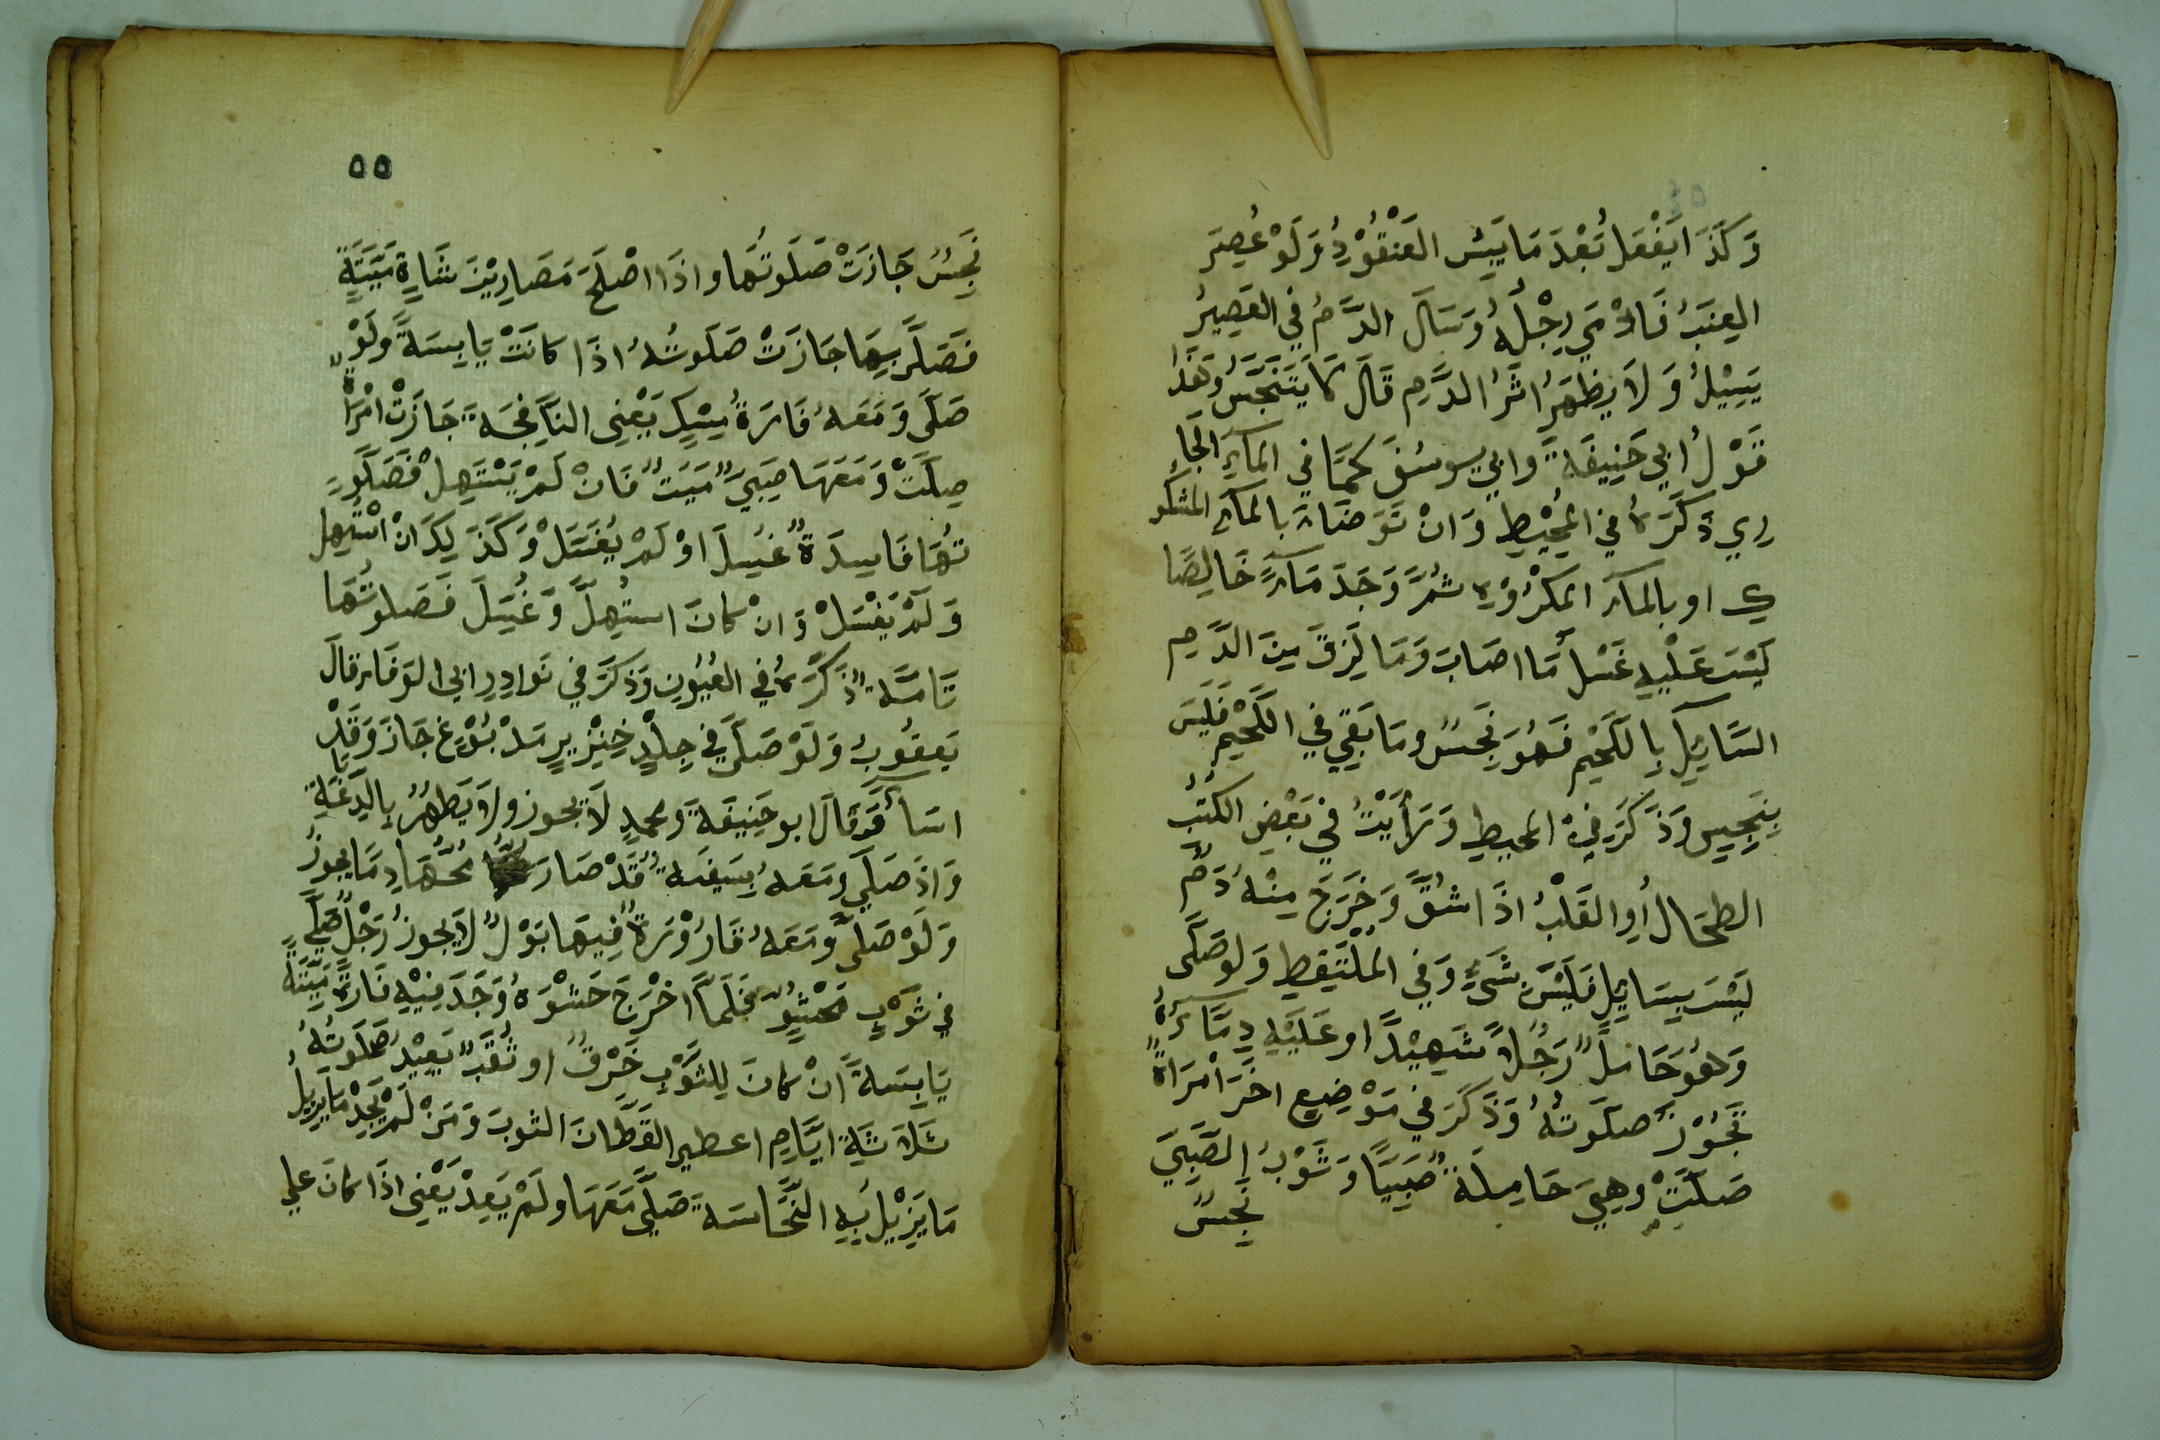 ٥٤
وَكَذَا يَفْعَلُ بَعْدَ مَا يَيْبَسُ العَنْقُوْدِ وَلَوْ عُصِرَ
العِنَبُ فَادْمِيَ رِجْلُهُ وَسَالَ الدَّمُ فِي العَصِيرُ
يَسِيْلُ وَلَا يَظْهَرُ اثَرُ الدَّمِ قَالَ لَا يَتَنَجَّسُ وَهَذَا
قَوْلُ ابي حَنِيفَةَ وابي يوسُفَ كمَا في المآءِ الجَا
رِي ذَكَرَهُ في المحِيْطِ وَانْ تَوَضَّاءَ بالمآءِ المشكو
ك او بالمآءِ المكرُوْهِ ثُمَّ وَجَدَ مَآءً خَالِصًا
لَيْسَ عَلَيْهِ غَسْلُ مَا اصَابَ وَمَا لَزِقَ مِنَ الدَّمِ
السَّائِلِ بِاللَحْمِ فَهُوَ نَجِسٌ ومَا بَقِيَ فِي اللَحْمِ فَلَيْسَ
بِنَجِسٍ وَذَكَرَ في المحيطِ وَرَأَيْتُ فِي بَعْضِ الكتُبُ
الطحَالُ أوِ القَلْبُ اذَا شُقَّ وَخَرَجَ مِنْهُ دَمٌ
لَيْسَ بِسَائِلٍ فَلَيْسَ بِشَيْءٍ وَفي المُلْتَقِطِ وَلوصَلَّى
وَهُوَ حَامِلٌ رَجُلًا شَهِيْدًا او عَلَيْهِ دِمَاءُهُ
تَجُوْزُ صَلَوتُهُ وَذَكَرَ في مَوْضِعٍ اخَرَ امْرَاةٌ
صَلَّتْ وهِيَ حَامِلَةٌ صَبِيًّا وَثَوْبُ الصَّبِيِّ
نَجِسٌ
٥٥
نَجِسٌ جَازَتْ صَلَوتُهَا واذَا اصْلَحَ مَصَارِيْنَ شَاةٍ مَيِّتَةٍ
فَصَلَّى بِهَا جَازَتْ صَلَوتُهُ اذَا كانَتْ يَابِسَةً وَلَوْ
صَلَّى وَمَعَهُ فَارَةُ مِسْكٍ يَعْنِي النَافِجَةَ جَازَتْ امْرَاةٌ
صلَّتْ وَمَعَهَا صَبِيٌّ مَيِّتٌ فَانْ لَمْ يَسْتَهِلْ فَصَلَو
تُهَا فَاسِدَةٌ غُسِلَ اوْ لَمْ يُغْسَلْ وَكَذَلِكَ انْ اسْتُهِل
وَلَمْ يُغْسَلْ وَانْ كانَ استُهِلَّ وَغُسِلَ فَصَلوتُهَا
تَامَّةٌ ذَكَرَهُ في العُيُونِ وَذكَرَ في نَوادِرِ ابي الوَفَاءِ قالَ
يَعقُوبُ وَلَوْ صَلَّى في جِلْدِ خِنْزِيرٍ مَدْبُوْغٍ جَازَ وَقَدْ
اسَآءَ وَقَالَ ابو حَنِيفَةَ ومحمدٍ لَا يجوز ولَا يَطهُرُ بِالدِبَاغَةِ
وَاذَ صَلَّى ومَعَهُ بَيْضَةٌ قَدْ صَارَ مُحُّهَا دمَا يجوزُ
وَلَوْ صَلَّى وَمَعَهُ قَارُوْرَةٌ فِيهَا بَوْلٌ لَا يجوزُ رَجُلٌ صَلَّى
في ثَوْبٍ مَحْشُوٍّ فَلَمَّا اخْرَجَ حَشْوَهُ وَجَدَ فِيْهِ فَارَةً مَيِّتَةً
يَابِسَةً انْ كانَ لِلثَّوْبِ خَرْقٌ او ثُقْبٌ يَعِيْدُ صَلَوتُهُ
ثَلَاثَةِ ايَّامٍ اعطير القَطَّانَ الثوبَ وَمَنْ لَمْ يَجِدْ مَا يزيلُ
مَا يَزِيْلُ بِهِ النَّجَاسَةَ صَلَّى مَعَهَا ولَمْ يَعِدْ يَعْنِي اذَا كانَ علي